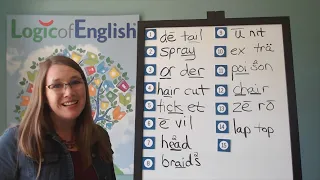 Logic of English
1 dē tail
2 spray
3 or der
4 hair cut
5 tick et
6 ē vil
7 head
8 braids
9 ū nit
10 ex trä
11 poi son
12 chair
13 zē rō
14 lap top
15